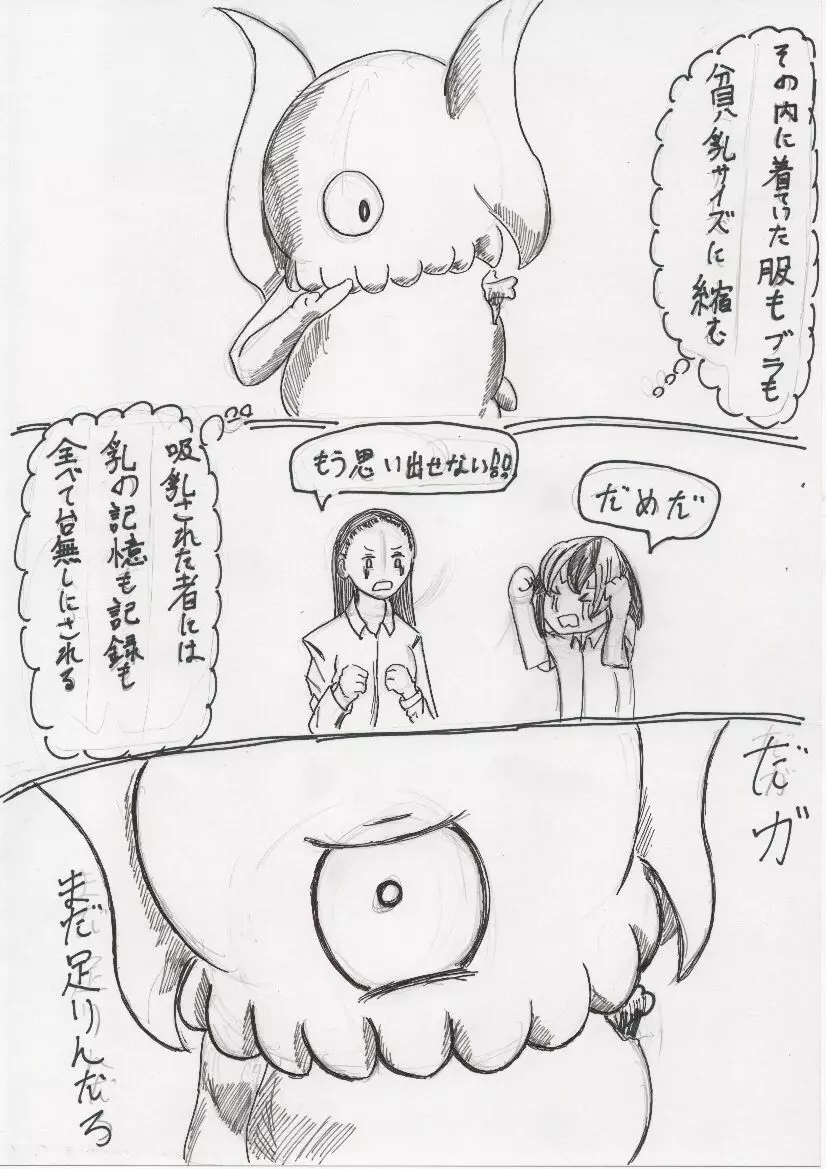 その内に着ていった服もブラも
貧乳サイズに縮む
もう思い出せない!!
だめだ
吸乳された者には
乳の記憶も記録も
全べて台無しにされる
だガ
まだ足りんだろ